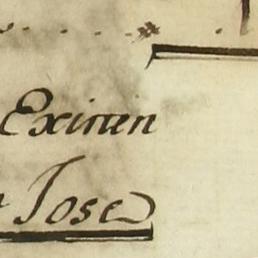 Existen
Jose